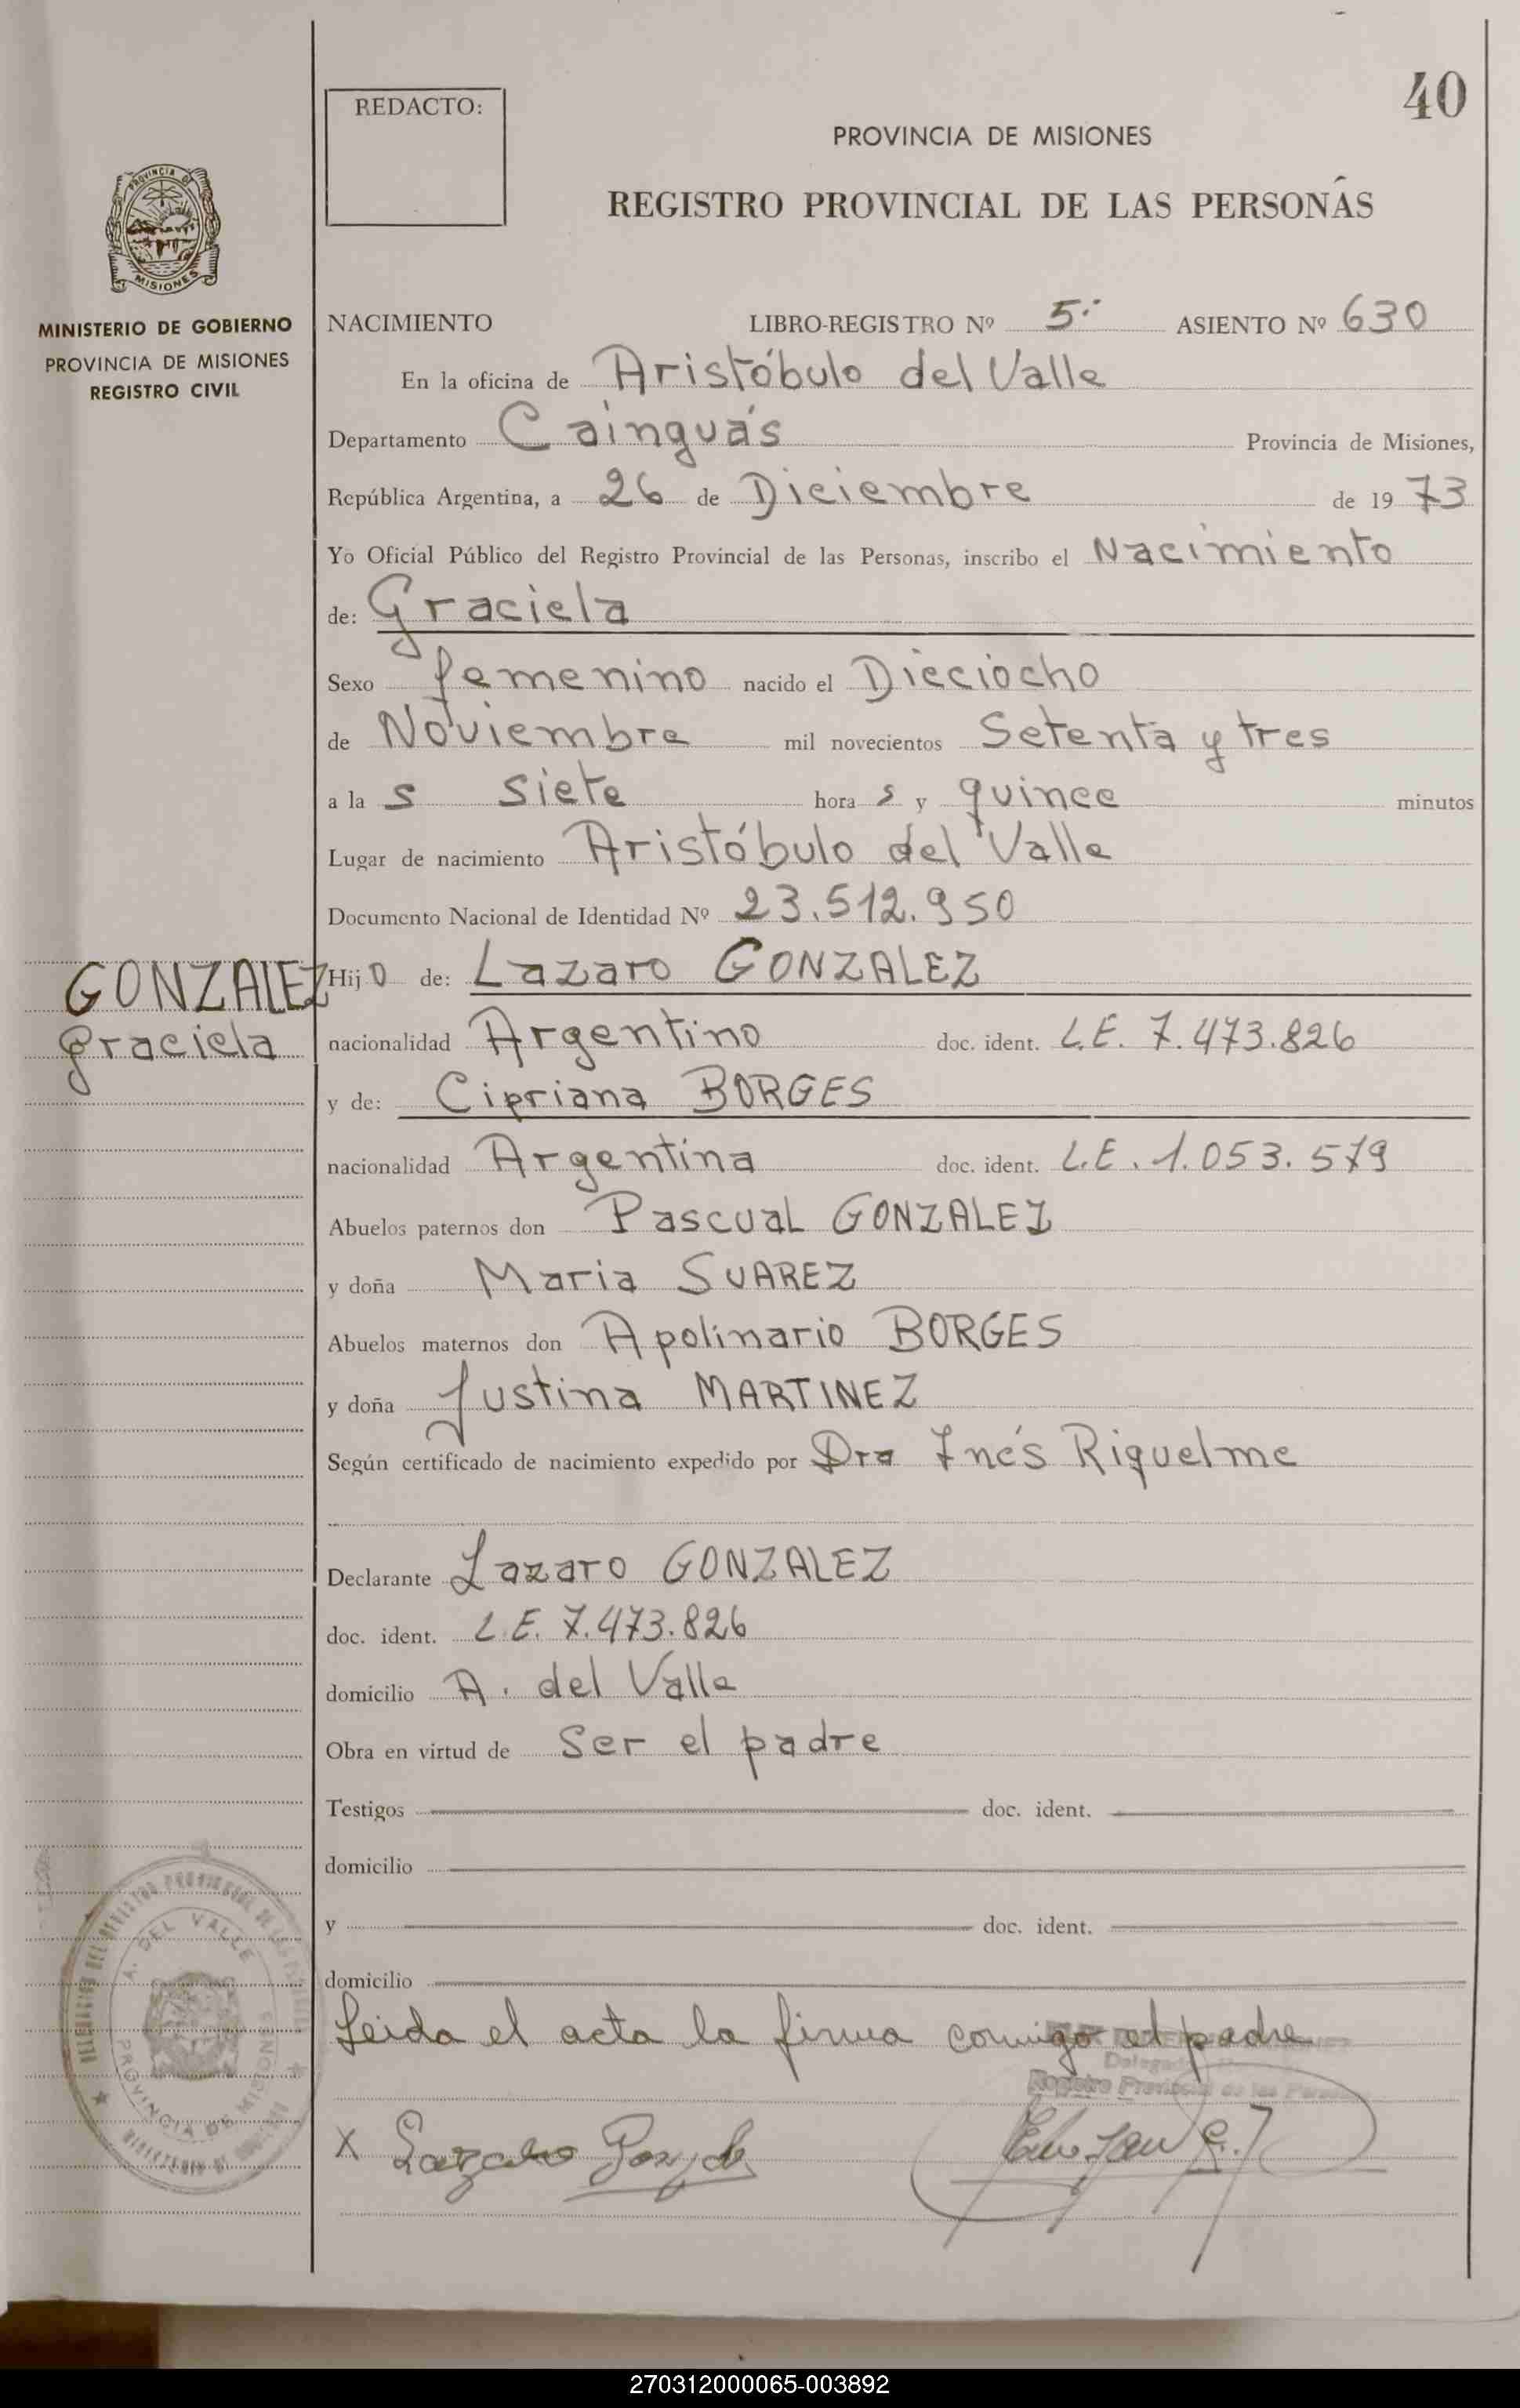 40
REDACTO:
PROVINCIA DE MISIONES
REGISTRO PROVINCIAL DE LAS PERSONAS
PROVINCIA DE
MISIONES
MINISTERIO DE GOBIERNO
PROVINCIA DE MISIONES
REGISTRO CIVIL
NACIMIENTO LIBRO-REGISTRO Nº 5· ASIENTO Nº 630
En la oficina de Aristóbulo del Valle
Departamento Cainguás Provincia de Misiones,
República Argentina, a 26 de Diciembre de 19 73
Yo Oficial Público del Registro Provincial de las Personas, inscribo el Nacimiento
de: Graciela
Sexo femenino nacido el Dieciocho
de Noviembre mil novecientos Setenta y tres
a la s siete hora s y quince minutos
Lugar de nacimiento Aristóbulo del Valle
Documento Nacional de Identidad Nº 23.512.950
GONZALEZ
Graciela
Hij o de: Lazaro GONZALEZ
nacionalidad Argentino doc. ident. L.E. 7.473.826
y de: Cipriana BORGES
nacionalidad Argentina doc. ident. L.E. 1.053.579
Abuelos paternos don Pascual GONZALEZ
y doña Maria SUAREZ
Abuelos maternos don Apolinario BORGES
y doña Justina MARTINEZ
Según certificado de nacimiento expedido por Dra Inés Riquelme
Declarante Lazaro GONZALEZ
doc. ident. L.E. 7.473.826
domicilio A. del Valle
Obra en virtud de ser el padre
Testigos doc. ident.
domicilio
y doc. ident.
domicilio
Leida el acta la firma conmigo el padre
Registro Provincial de las
X Lazaro Gonzalez
A. DEL VALLE
PROVINCIA DE MISIONES
270312000065-003892